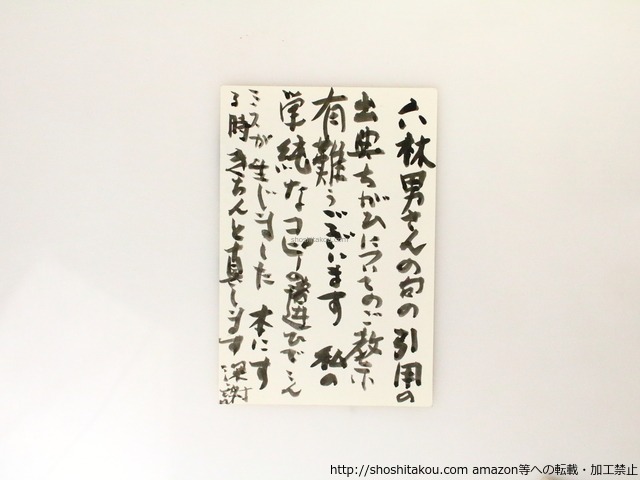 六林男さんの句の引用の
出典ちがひについてのご教示
有難うございます 私の
単純なコピーの勝違ひでこん
ミスが生じました 本にす
る時きちんと直します 深謝
shoshitakou.com
http://shoshitakou.com amazon等への転載・加工禁止